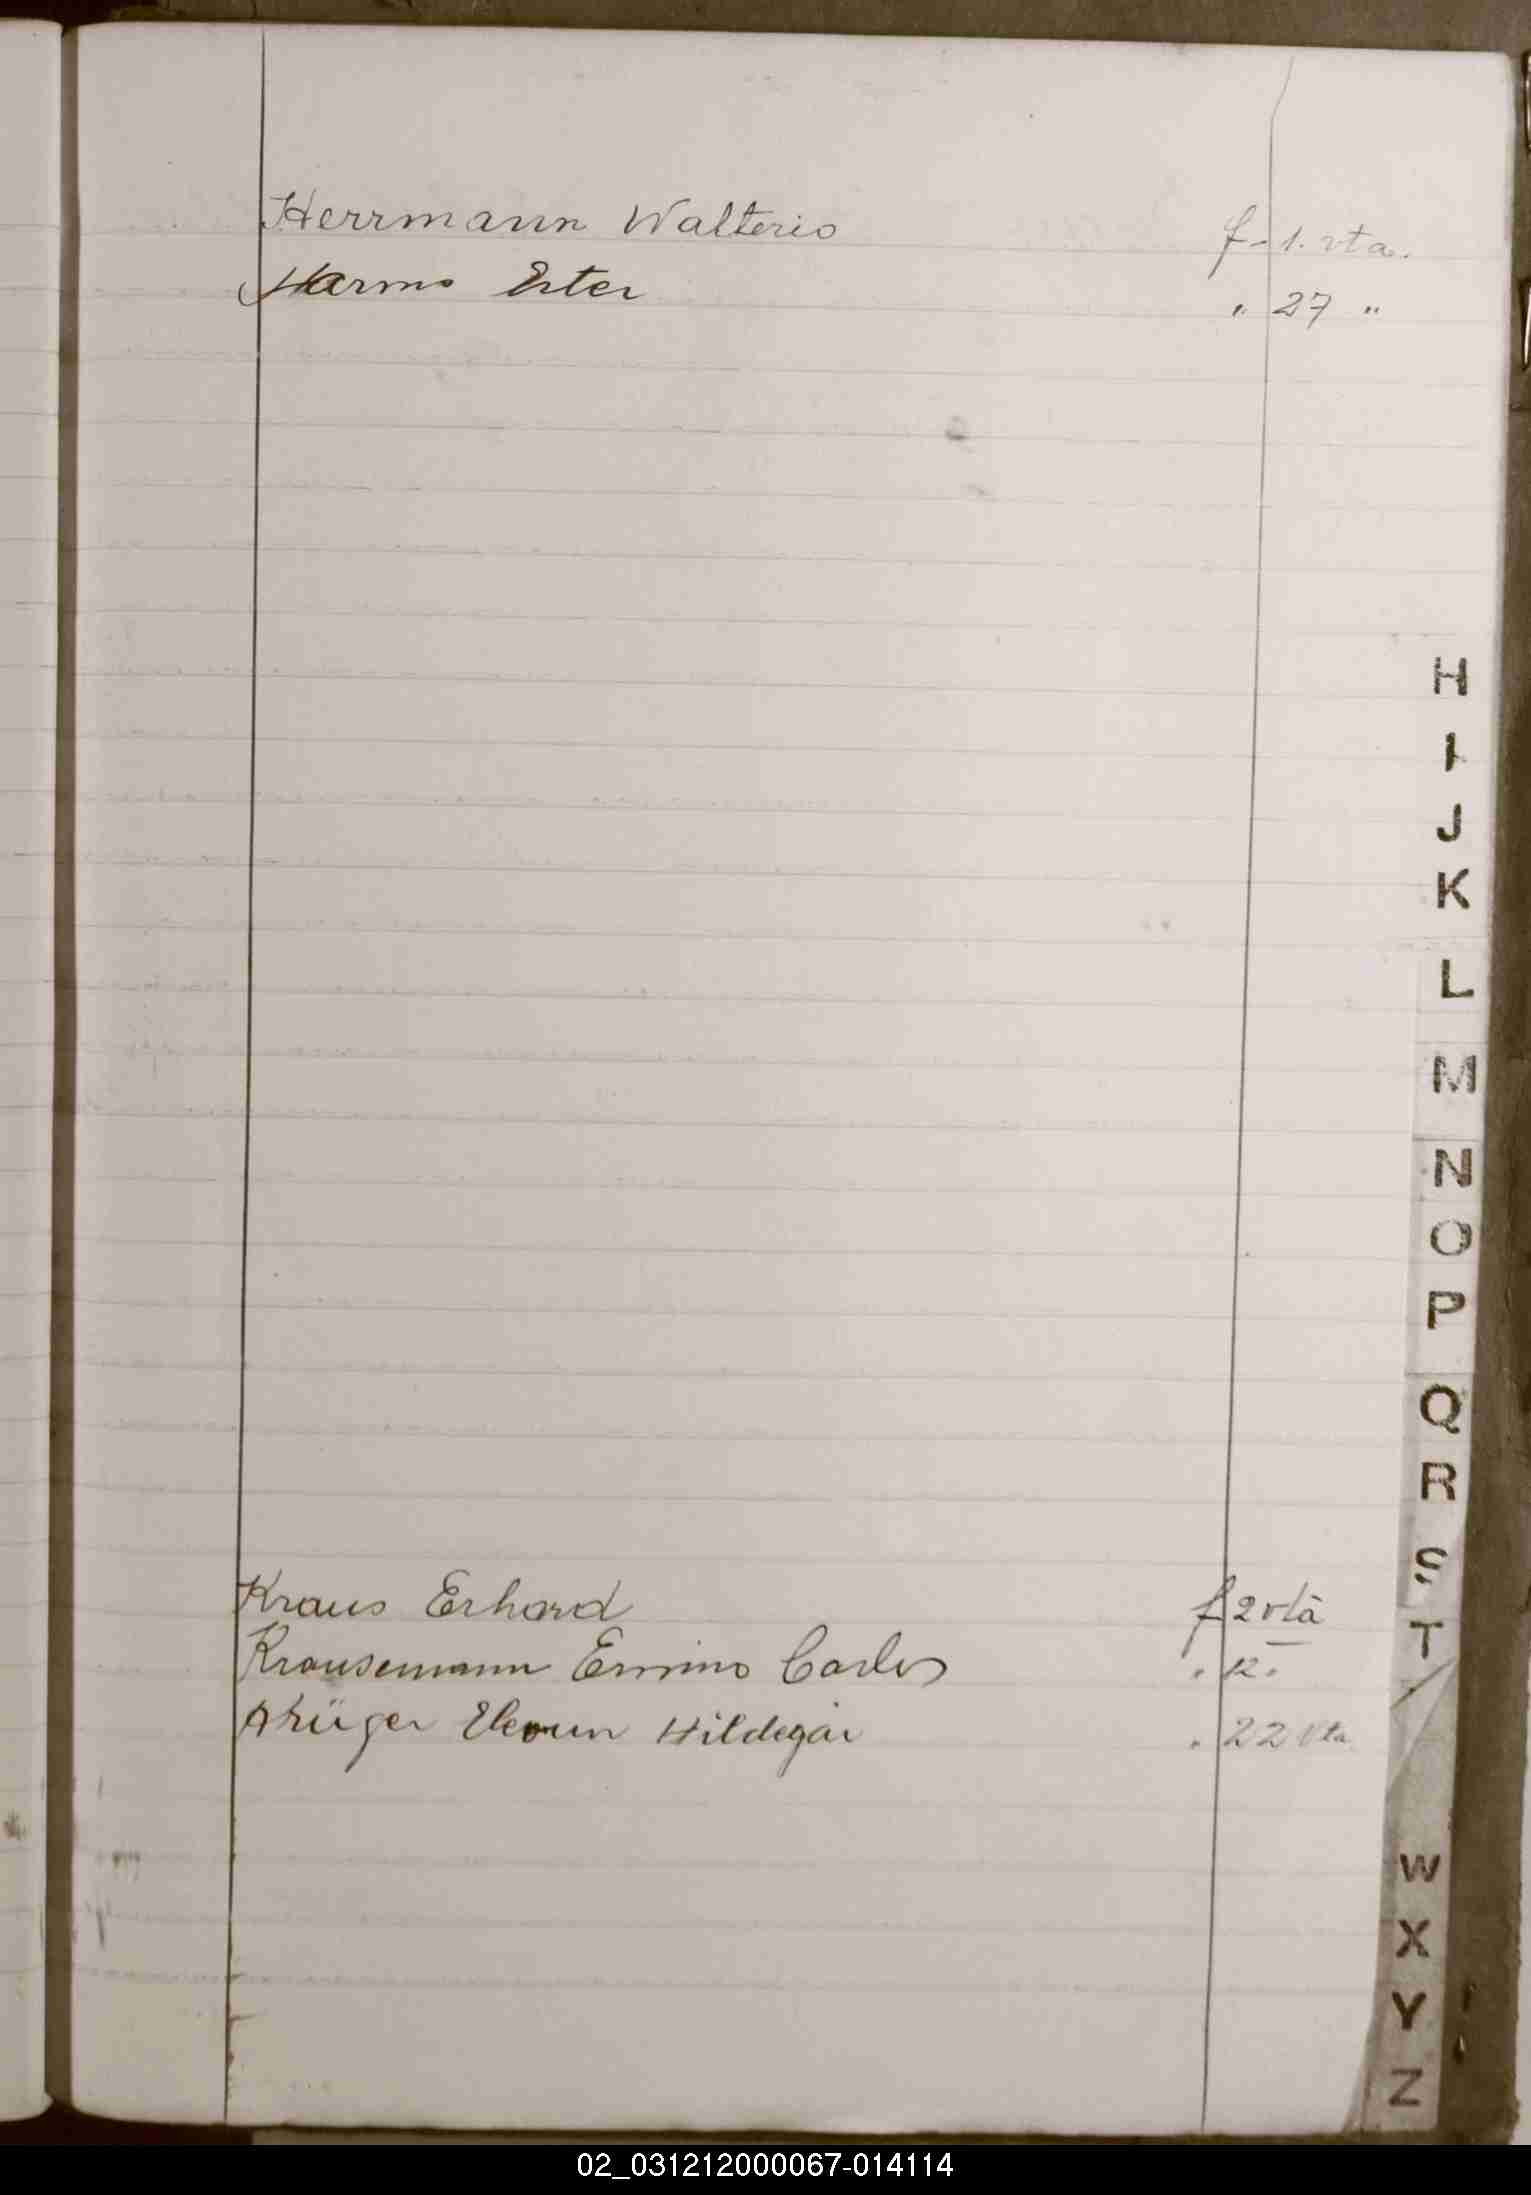 Herrmann Walterio f-1. vta.
Harms Ester " 27 "
H
I
J
K
L
M
N
O
P
Q
R
S
T
Kraus Erhard f 2 vta
Krausemann Erminio Carlos " 12 "
Krüger Hildegar " 22 vta
W
X
Y
Z
02_031212000067-014114